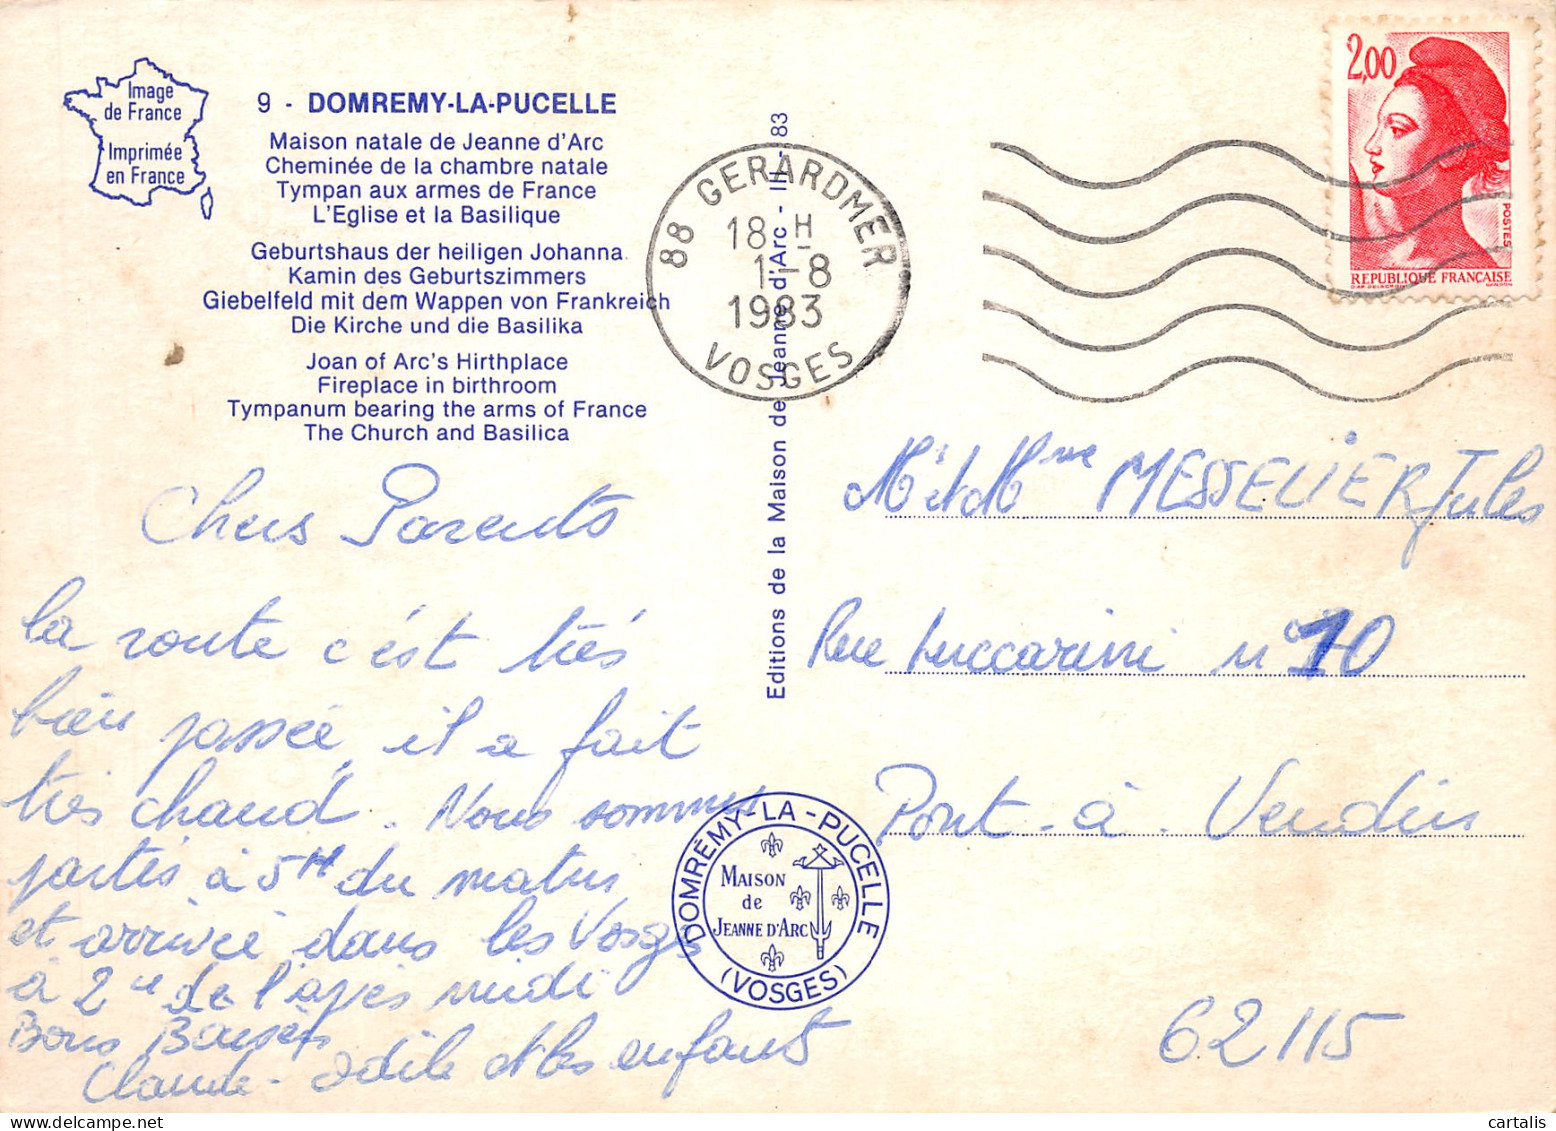 Image
de France
Imprimée
en France
9 - DOMREMY-LA-PUCELLE
Maison natale de Jeanne d'Arc
Cheminée de la chambre natale
Tympan aux armes de France
L'Eglise et la Basilique
Geburtshaus der heiligen Johanna
Kamin des Geburtszimmers
Giebelfeld mit dem Wappen von Frankreich
Die Kirche und die Basilika
Joan of Arc's Hirthplace
Fireplace in birthroom
Tympanum bearing the arms of France
The Church and Basilica
Editions de la Maison de Jeanne d'Arc - III - 83
88 GERARDMER
18 H
1-8
1983
VOSGES
2,00
POSTES
REPUBLIQUE FRANÇAISE
Chers Parents
la route c'est très
bien passée, il a fait
très chaud. Nous sommes
partés à 5H du matin
et arrivée dans les Vosges
à 2 de l'après midi
Bons Baisers
Claude - odile et les enfants
DOMRÉMY-LA-PUCELLE
MAISON
de
JEANNE D'ARC
(VOSGES)
Mr et Mme MESSELIER Jules
Rue Luccarini n° 10
Pont-à-Vendin
62115
cartalis